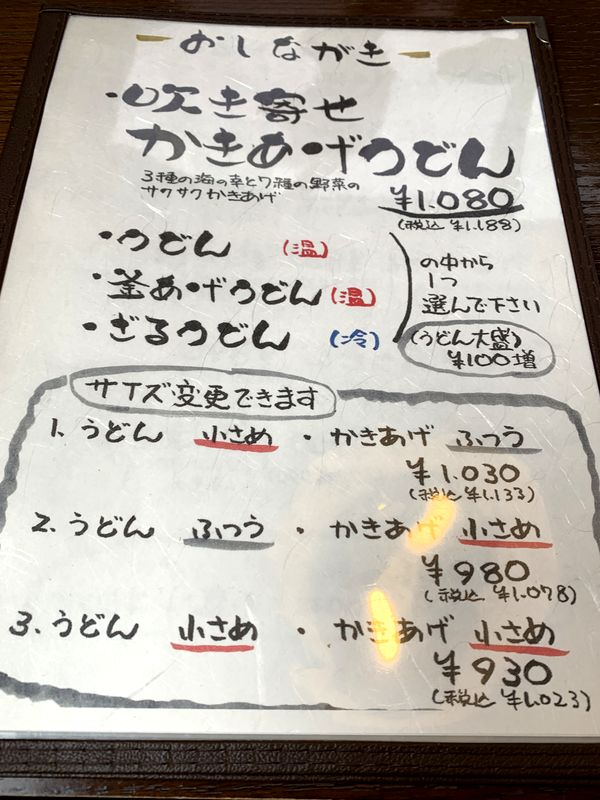 おしながき
・吹き寄せ
かきあげうどん
3種の海の幸と7種の野菜の
サクサクかきあげ
¥1.080
(税込 ¥1.188)
・うどん (温)
・釜あげうどん (温)
・ざるうどん (冷)
の中から
1つ
選んで下さい
(うどん大盛)
¥100増
サイズ変更できます
1. うどん 小さめ ・ かきあげ ふつう
¥1.030
(税込 ¥1.133)
2. うどん ふつう ・ かきあげ 小さめ
¥980
(税込 ¥1.078)
3. うどん 小さめ ・ かきあげ 小さめ
¥930
(税込 ¥1.023)